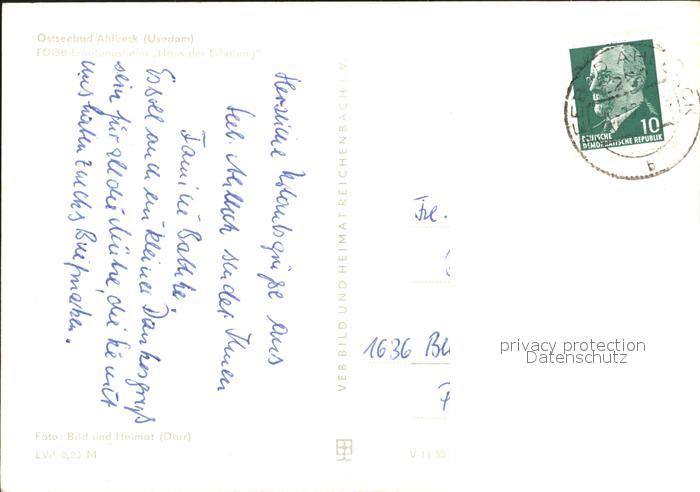 Ostseebad Ahlbeck (Usedom)
FDGB-Erholungsheim „Haus der Erholung"
Herzliche Urlaubsgrüße aus
Seeb. Ahlbeck sendet Ihnen
Familie
Es soll auch ein kleiner Dankesgruß
sein für all die Mühe, die Sie mit
uns haben
VEB BILD UND HEIMAT REICHENBACH I. V.
10
DEUTSCHE
DEMOKRATISCHE REPUBLIK
b
1636
privacy protection
Datenschutz
Foto: Bild und Heimat (Darr)
EVP 0,20 M
V 11 50